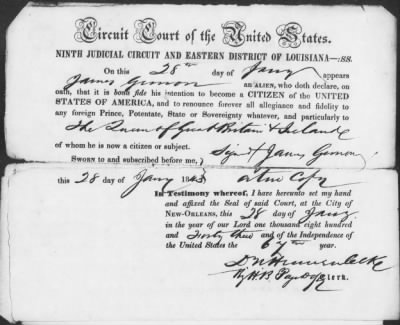 Circuit Court of the United States.
NINTH JUDICIAL CIRCUIT AND EASTERN DISTRICT OF LOUISIANA—:SS.
On this 28th day of Jany appears
James
an ALIEN, who doth declare, on
oath, that it is bona fide his intention to become a CITIZEN OF THE UNITED
STATES OF AMERICA, and to renounce forever all allegiance and fidelity to
any foreign Prince, Potentate, State or Sovereignty whatever, and particularly to
The Queen of Great Britain & Ireland
of whom he is now a citizen or subject.
SWORN to and subscribed before me, Signd James
this 28 day of Jany 1843 a true Copy
In Testimony whereof, I have hereunto set my hand
and affixed the Seal of said Court, at the City of
NEW-ORLEANS, this 28 day of Jany.
in the year of our Lord one thousand eight hundred
and forty three and of the Independence of
the United States the 67th year.
Clerk.